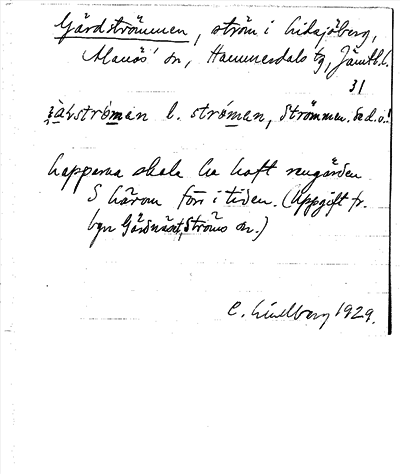 Gärdströmmen, ström i Lidsjöberg,
Alanäs' sn, Hammerdals tg, Jämtl. l.
31
strǿman l. strǿman, Strömmen. Sed. o.!
Lapparna skola ha haft rengärden
S härom förr i tiden. (Uppgift fr.
byn Gärdnäset, Ströms sn.)
C. Lindberg 1929.